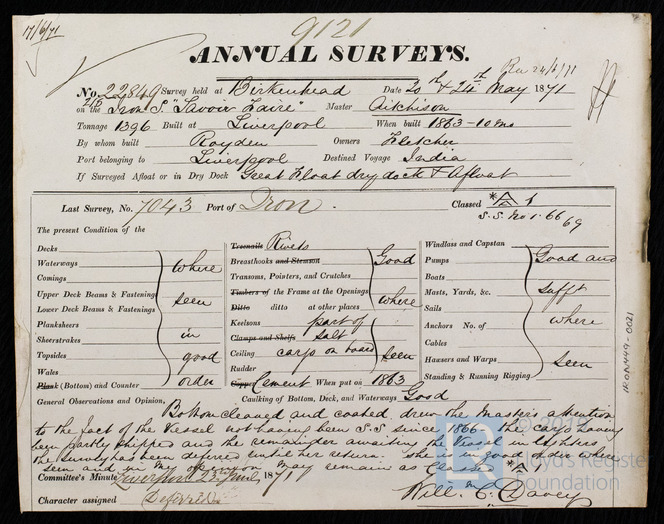 17/6/71
9121
ANNUAL SURVEYS.
Rec 24/6/71
No. 22849 Survey held at Birkenhead Date 20th & 24th May 1871
on the Iron S. "Savoir Faire" Master Aitchison
Tonnage 1396 Built at Liverpool When built 1863-10mo
By whom built Royden Owners Fletcher
Port belonging to Liverpool Destined Voyage India
If Surveyed Afloat or in Dry Dock Great Float dry dock & Afloat
Last Survey, No. 7043 Port of Iron. Classed
S.S. No 1. 66 69
The present Condition of the
Decks
Waterways
Comings
Upper Deck Beams & Fastenings
Lower Deck Beams & Fastenings
Planksheers
Sheerstrakes
Topsides
Wales
Plank (Bottom) and Counter
where
seen
in
good
order
Treenails Rivets
Breasthooks and Stemson
Transoms, Pointers, and Crutches
Timbers of the Frame at the Openings
Ditto ditto at other places
Keelsons
Clamps and Shelfs
Ceiling
Rudder
part of
salt
cargo on board
Good
where
seen
Copper Cement When put on 1863
Caulking of Bottom, Deck, and Waterways Good
Windlass and Capstan
Pumps
Boats
Masts, Yards, &c.
Sails
Anchors No. of
Cables
Hawsers and Warps
Standing & Running Rigging
Good and
sufft
where
seen
General Observations and Opinion,
Bottom cleaned and coated drew the Masters attention
to the fact of the Vessel not having been S.S. since 1866 - the cargo having
been partly shipped and the remainder awaiting the Vessel in Lighters
the Survey has been deferred until her return. She is in good order where
seen and in my opinion may remain as classed
Committee's Minute Liverpool 23 June 1871
Character assigned Deferred
Will. C. Davey
IRON449-0021
© 2019
LR
Lloyd's Register
Foundation